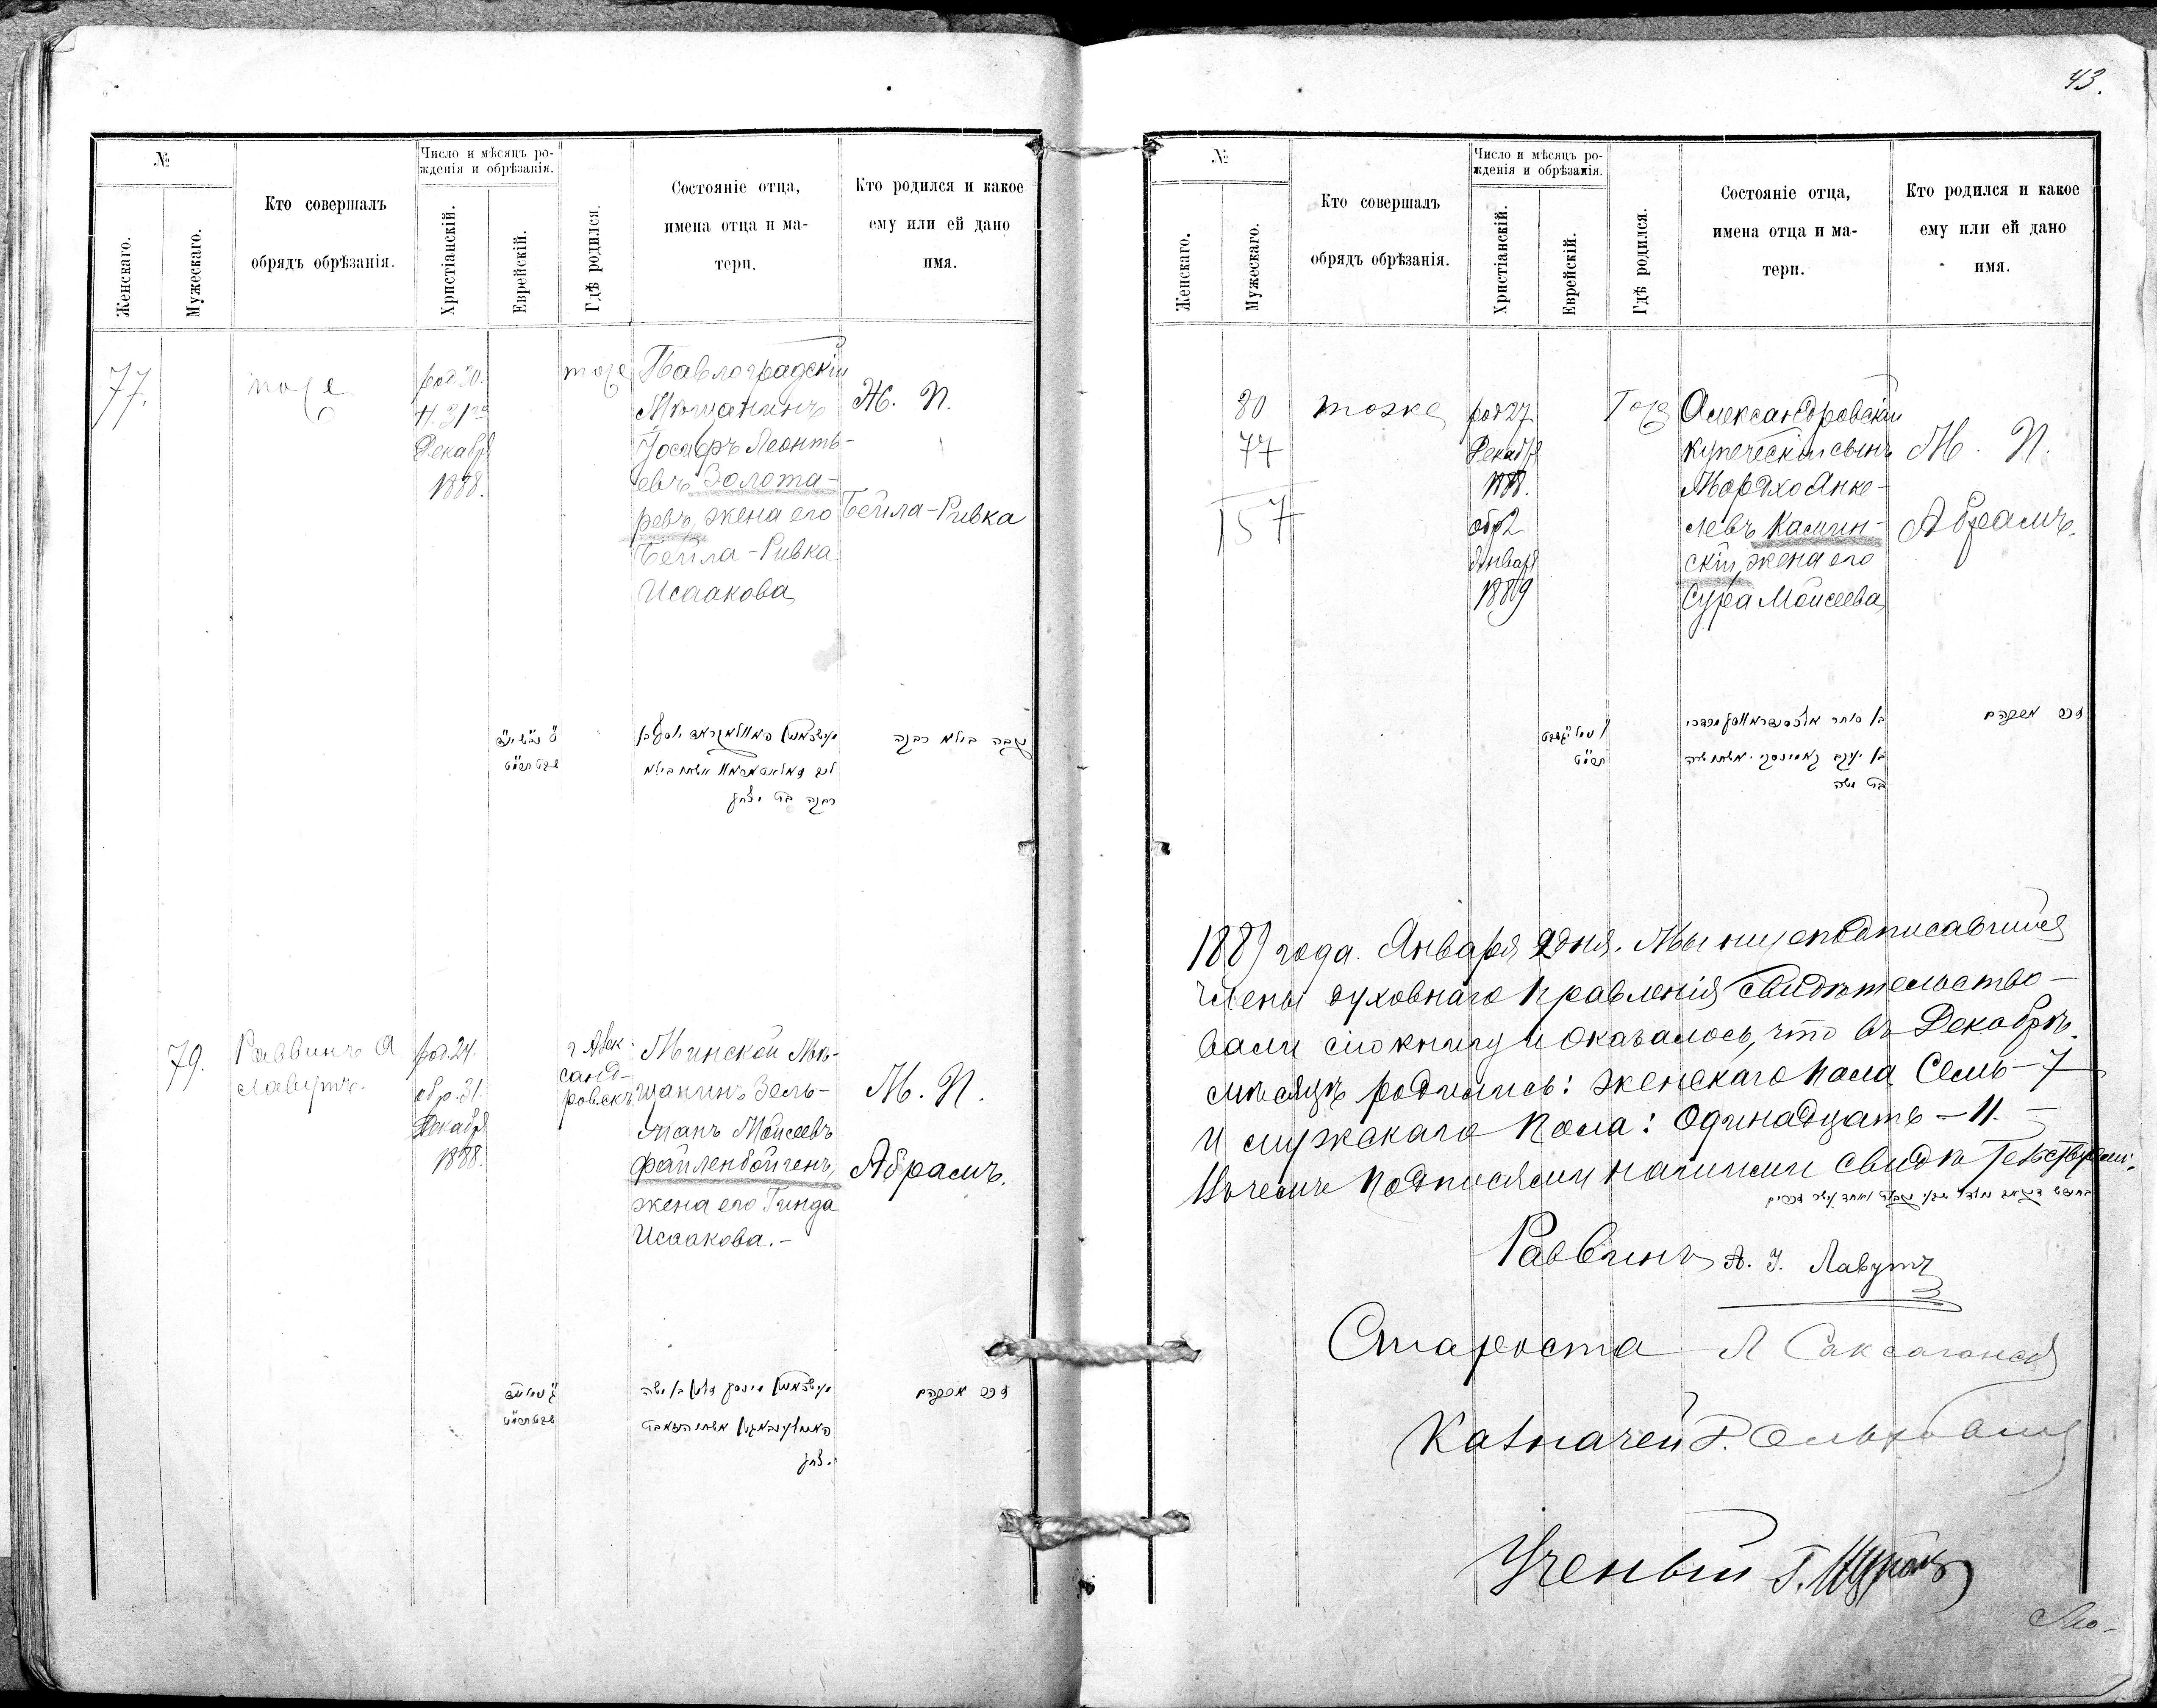 43.
№
Женскаго.
Мужескаго.
Кто совершалъ
обрядъ обрѣзанія.
Число и мѣсяцъ ро-
жденія и обрѣзанія.
Христіанскій.
Еврейскій.
Гдѣ родился.
Состояніе отца,
имена отца и ма-
тери.
Кто родился и какое
ему или ей дано
имя.
77.
тоже
род 30.
Н. 31го
Декабр
1888.
тоже
Павлоградскій
Мѣщанинъ
Іосифъ Леонть-
евъ Золота-
ревъ, жена его
Бейла-Ривка
Исаакова
Ж. П.
Бейла-Ривка
נקבה ביילא רבקה
79.
Раввинъ А
Лавутъ.
род. 24.
обр. 31.
Декабр
1888.
г Алек-
санд-
ровскъ
Минской Мѣ-
щанинъ Зель-
манъ Моисеевъ
Файленбойгенъ,
жена его Гинда
Исаакова.-
М. П.
Абрамъ.
זכר אברהם
יצחק
№
Женскаго.
Мужескаго.
Кто совершалъ
обрядъ обрѣзанія.
Число и мѣсяцъ ро-
жденія и обрѣзанія.
Христіанскій.
Еврейскій.
Гдѣ родился.
Состояніе отца,
имена отца и ма-
тери.
Кто родился и какое
ему или ей дано
имя.
80
77
157
тоже
род 27
Декабр
1888.
обр 2
Январ
1889
Тоже
Александровскій
купеческій сынъ
Мордхо Янке-
левъ Камин-
скій, жена его
Сура Моисеева
М. П.
Абрамъ.
זכר אברהם
בת משה
1889 года. Января 2 дня. Мы нижеподписавшіися
члены духовнаго правленія свидѣтельство-
вали сію книгу и оказалось, что въ Декабрѣ
мѣсяцѣ родились: женскаго пола Семь - 7
и мужскаго пола: Одинадцать - 11. -
Въ чемъ подписями нашими свидѣтельствуемъ.
Раввинъ А. І. Лавутъ
Староста Л Саксаганскій
Казначей
Ученый Г.